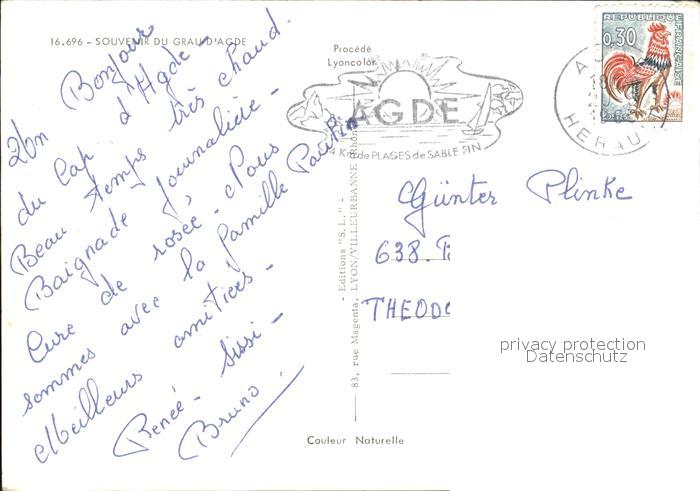 16.696 - SOUVENIR DU GRAU D'AGDE
Un Bonjour
du Cap d'Agde
Beau temps très chaud.
Baignade journalière -
Cure de rosée. Nous
sommes avec la famille
Meilleurs amitiés -
Renée - Sissi -
Bruno -
Procédé
Lyoncolor
AGDE
4 Km de PLAGES de SABLE FIN
RÉPUBLIQUE FRANÇAISE
0,30
POSTES
AGDE
HERAULT
- Editions "S.L." -
83, rue Magenta, LYON/VILLEURBANNE (Rhône)
Günter Plinke
638.
THEODO
privacy protection
Datenschutz
Couleur Naturelle